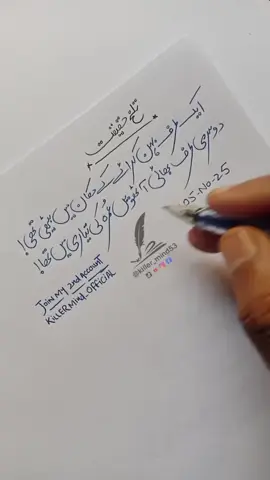 تلخ حقیقت
ایک طرف بہن کرائے کے مکان میں بیٹھی تھی!
دوسری طرف بھائی آٹھواں عمرہ کی تیاری میں تھا!
05-No-25
@killer_mind53
JOIN MY 2ND ACCOUNT
KILLERMIND_OFFICIAL